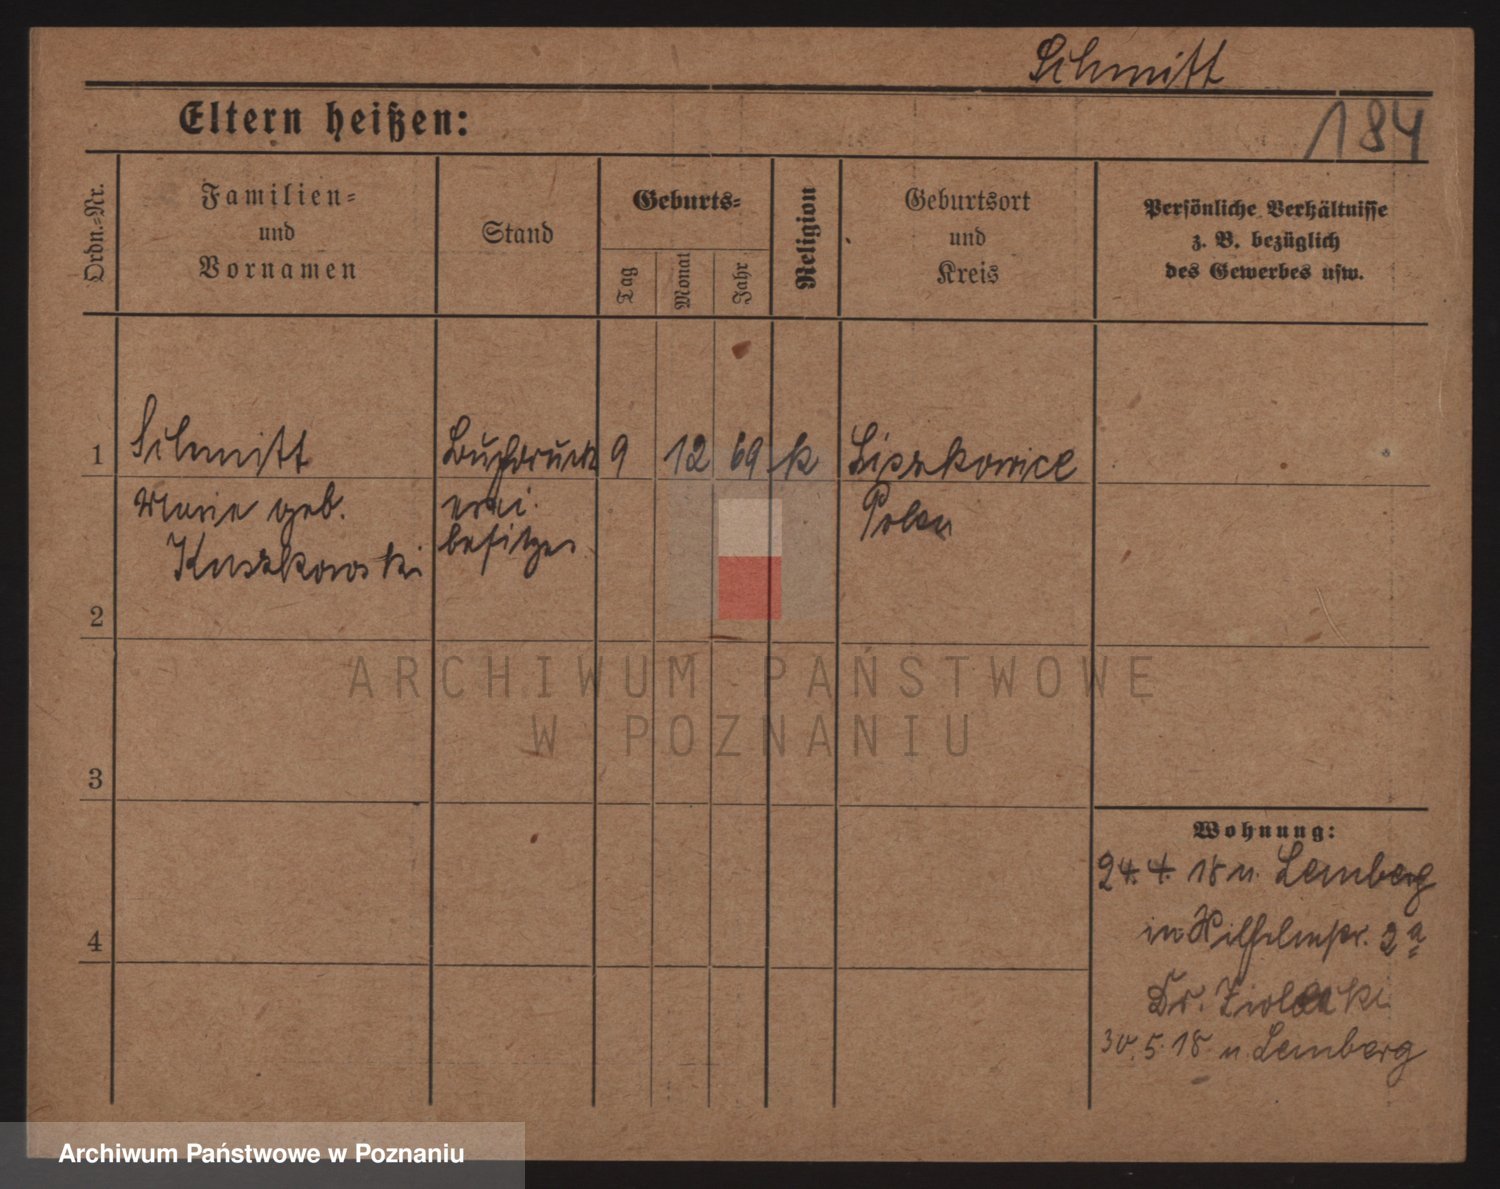 Schmitt
Eltern heißen:
184
Ordn.=Nr.
Familien=
und
Vornamen
Stand
Geburts=
Tag
Monat
Jahr
Religion
Geburtsort
und
Kreis
Persönliche Verhältnisse
z. B. bezüglich
des Gewerbes usw.
1 Schmitt Buchdruck 9 12 69 k Liszkowice
Marie geb. erei. Polen
Kuszkowski besitzer
2
3
4
Wohnung:
24. 4. 18 n. Lemberg
in Wilhelmstr. 2a
Dr.
30. 5. 18 n Lemberg
ARCHIWUM PAŃSTWOWE
W POZNANIU
Archiwum Państwowe w Poznaniu